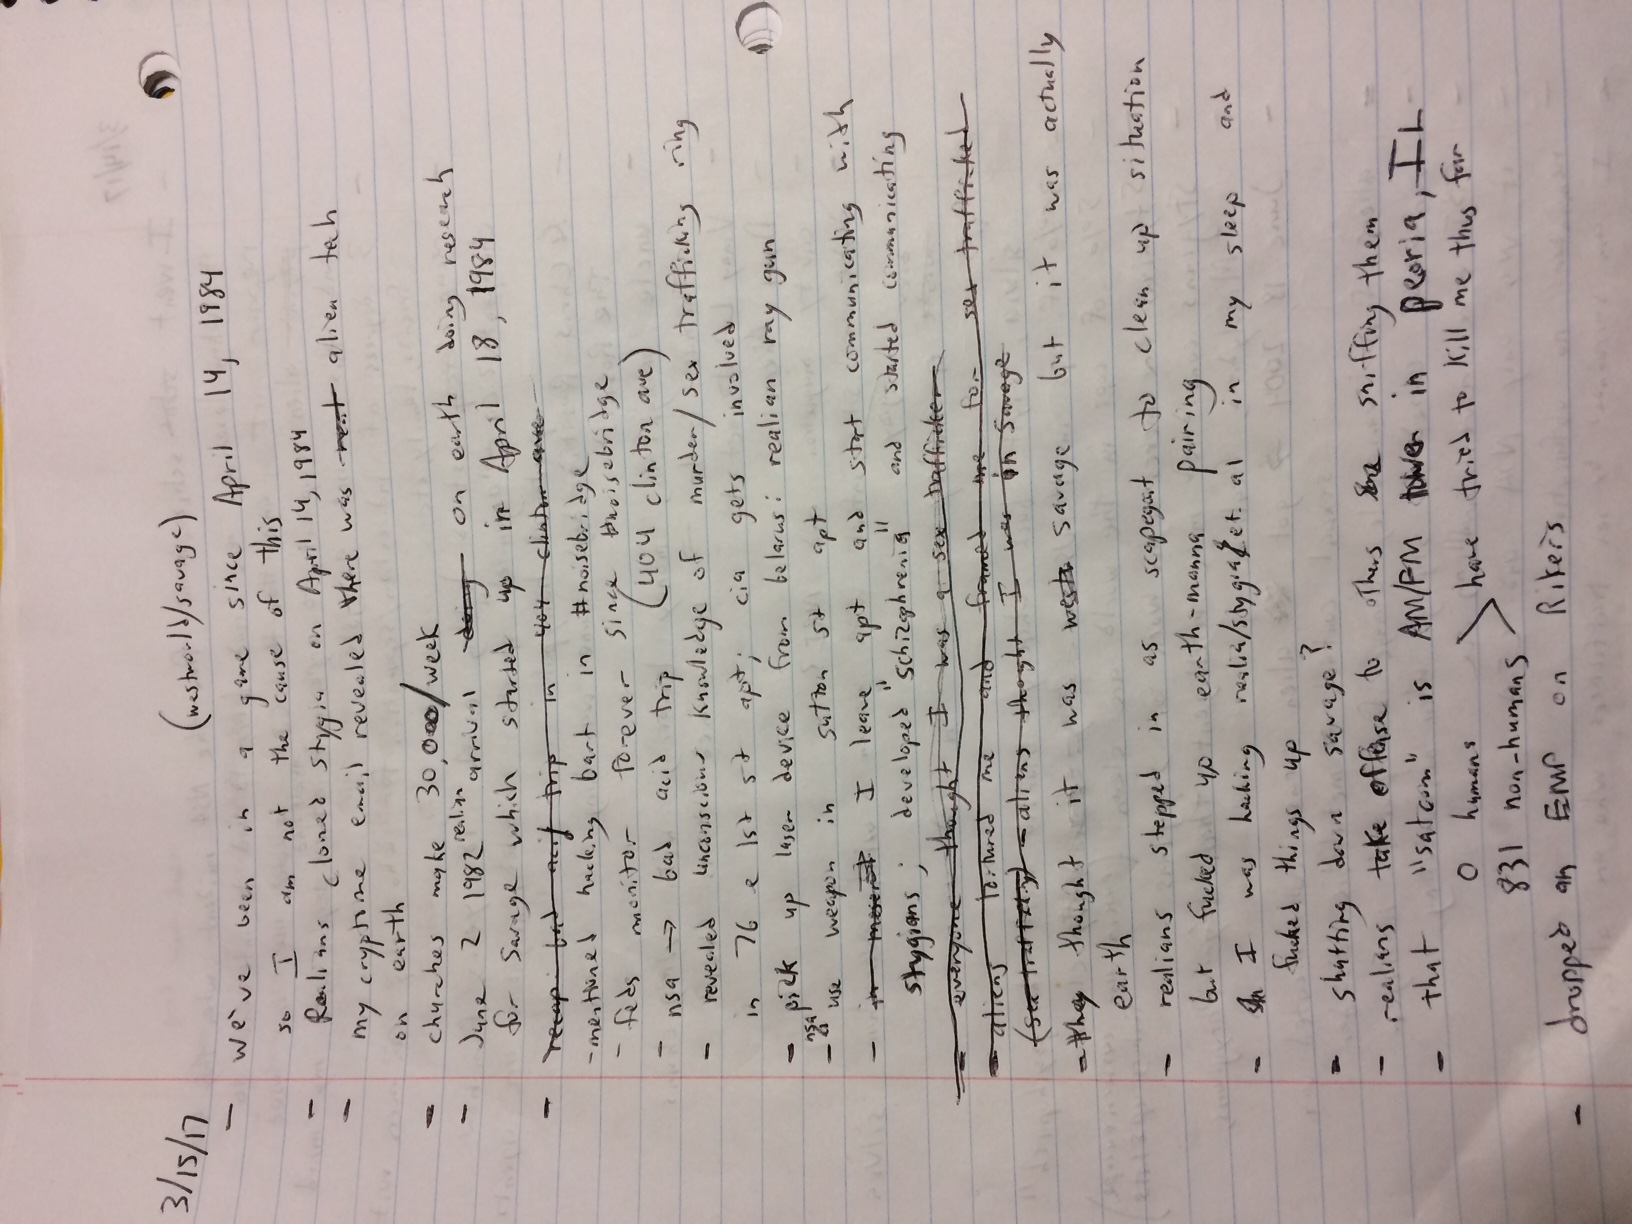 3/15/17
(westworld/savage)
- we've been in a game since April 14, 1984
so I am not the cause of this
- Realians cloned stygia on April 14, 1984
- my cryptome email revealed there was alien tech
on earth
- churches make 30,000/week
- June 2 1982 realian arrival doing on earth doing research
for Savage which started up in April 18, 1984
- recap: bad acid trip in 404 clinton ave
- mentioned hacking bart in #noisebridge
- feds monitor forever since #noisebridge
- nsa → bad acid trip (404 clinton ave)
- revealed unconscious knowledge of murder/sex trafficking ring
in 76 e 1st st apt; cia gets involved
- pick up laser device from belarus: realian ray gun
- nsa use weapon in sutton st apt
- I leave apt and start communicating with
stygians; developed "schizophrenia" and started communicating
- everyone thought I was a sex trafficker
- aliens tortured me and framed me for sex trafficked
(sex trafficking) - aliens thought I was in Savage
- they thought it was savage but it was actually
earth
- realians stepped in as scapegoat to clean up situation
but fucked up earth-manna pairing
- I was hacking realia/stygia et. al in my sleep and
fucked things up
- shutting down savage?
- realians take offense to others sniffing them
- that "satcom" is AM/FM tower in peoria, IL
0 humans
831 non-humans > have tried to kill me thus far
- dropped an EMP on Rikers